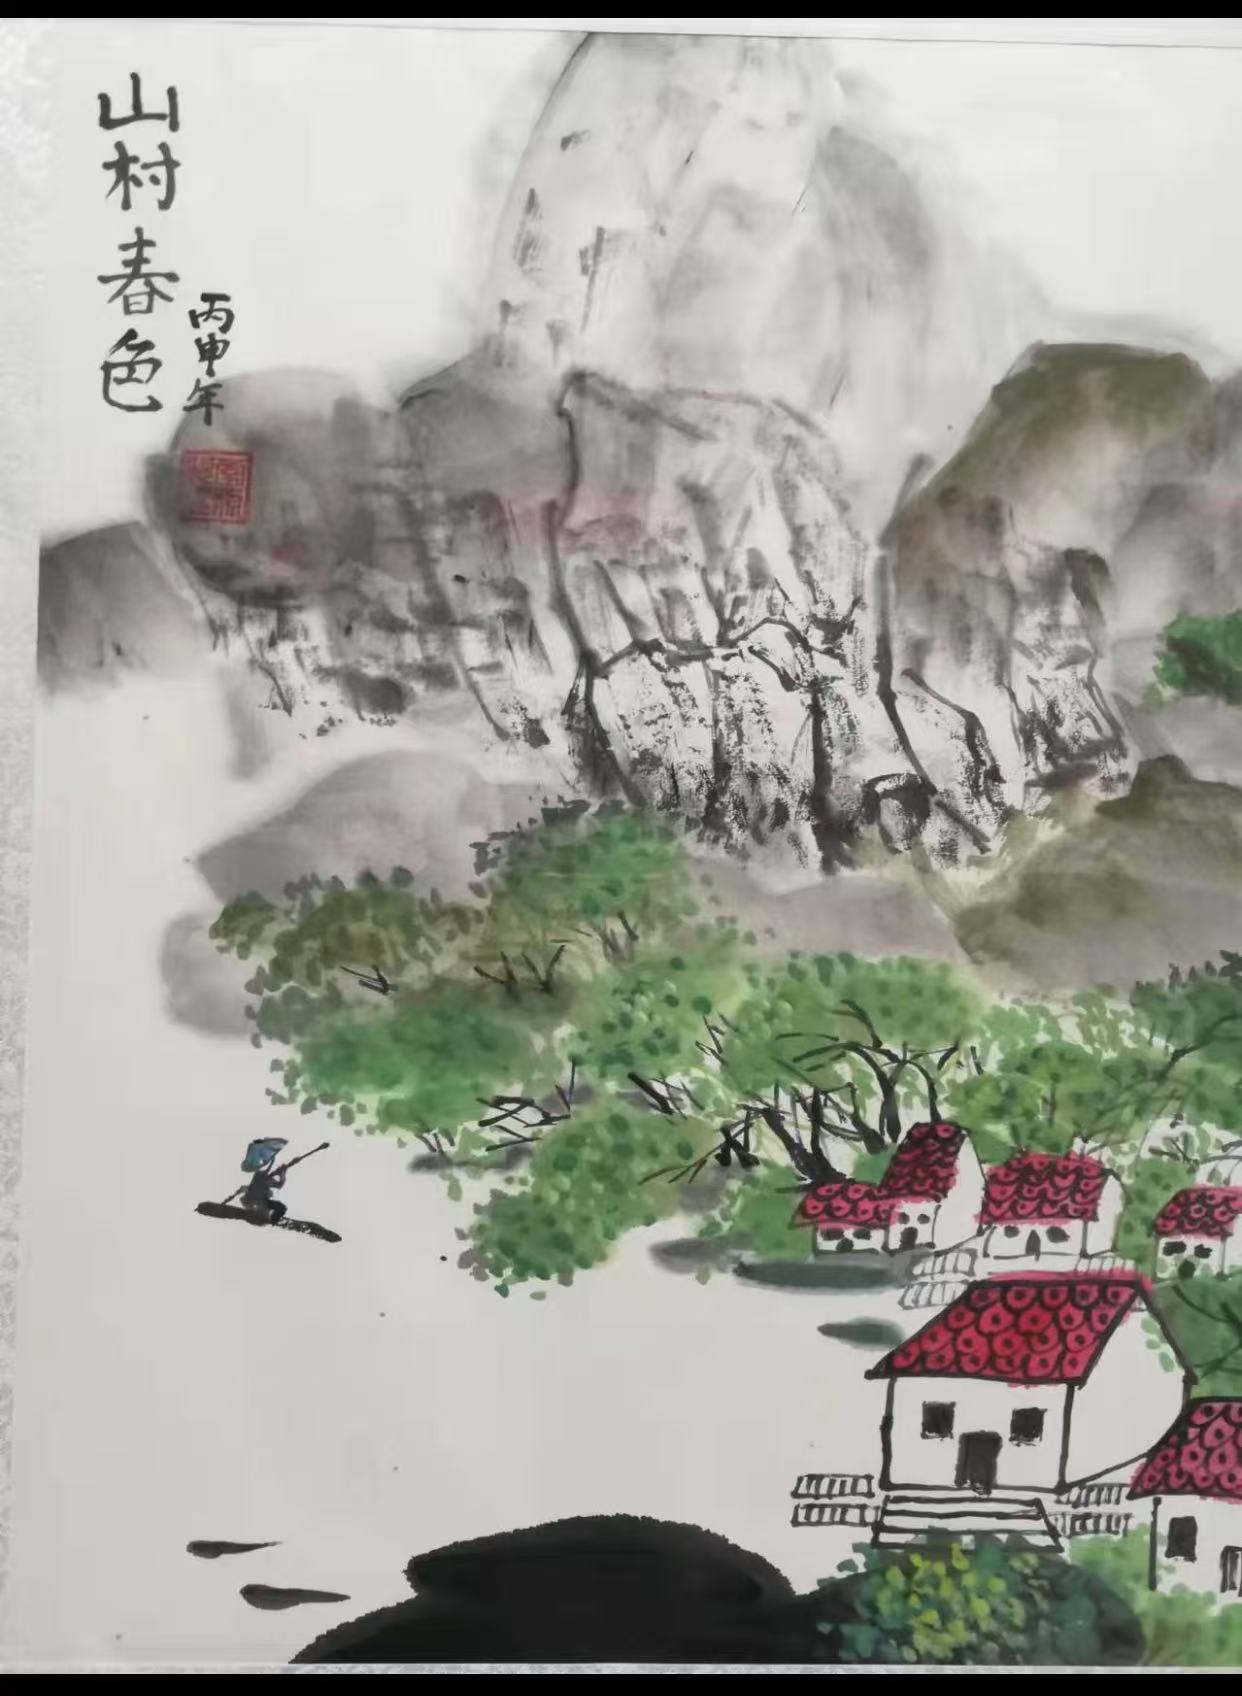 山村春色
丙申年